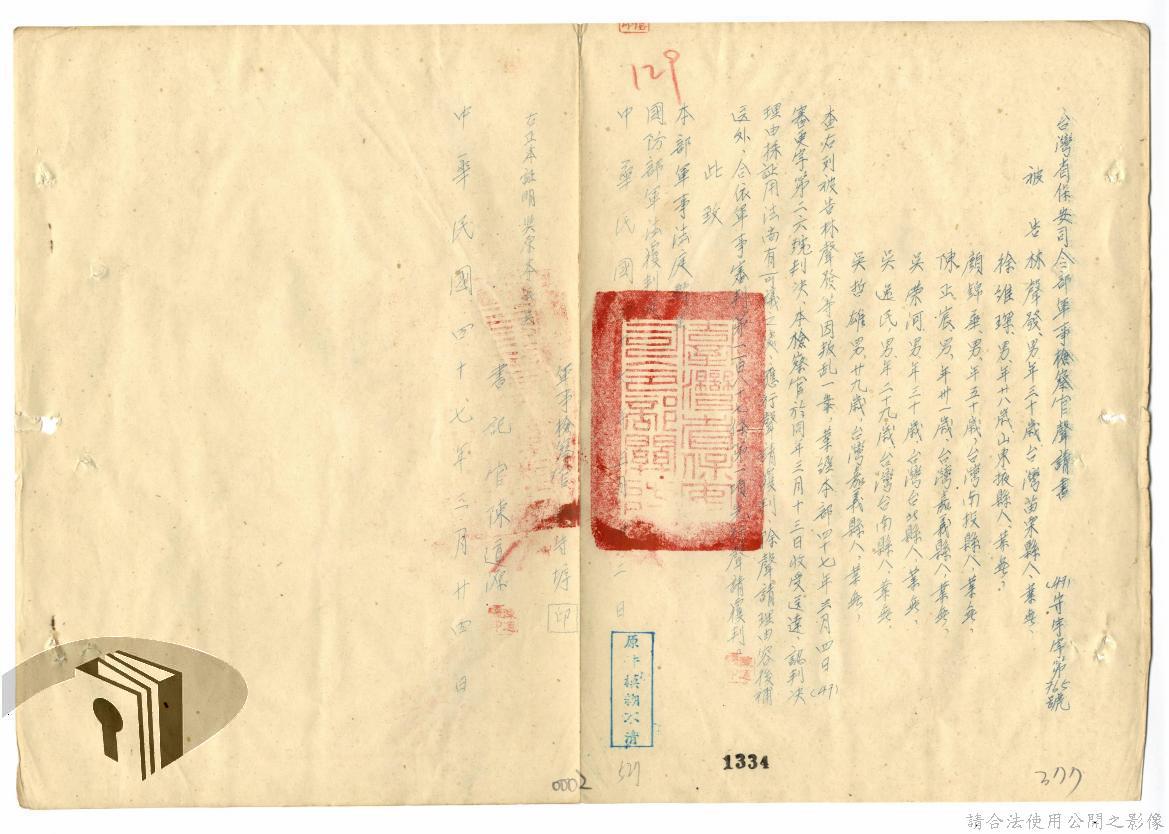 台灣省保安司令部軍事檢察官聲請書
(47)守字第765號
被告林聲發、男、年三十歲、台灣苗栗縣人、業無、
徐維琛、男、年廿八歲、山東掖縣人、業無、
顏錦華、男、年五十歲、台灣南投縣人、業無、
陳正宸、男、年卅一歲、台灣嘉義縣人、業無、
吳榮河、男、年三十歲、台灣台北縣人、業無、
吳逸民、男、年二十九歲、台灣台南縣人、業無、
吳哲雄、男、廿九歲、台灣嘉義縣人、業無、
查右列被告林聲發等因叛亂一案、業經本部四十七年三月四日(47)
審更字第二六號判決、本檢察官於同年三月十三日收受送達、認判決
理由採証用法尚有可議之處、應行聲請覆判、除聲請理由容後補
送外、合依軍事審判法第二百八七條第一項聲請覆判、
此致
本部軍事法庭
國防部軍法覆判
中華民國 月 三日
軍事檢察官
印
右正本証明與原本無異
書記官陳道源
中華民國四十七年三月廿四日
129
原卡模糊不清
527
1334
377
0002
請合法使用公開之影像